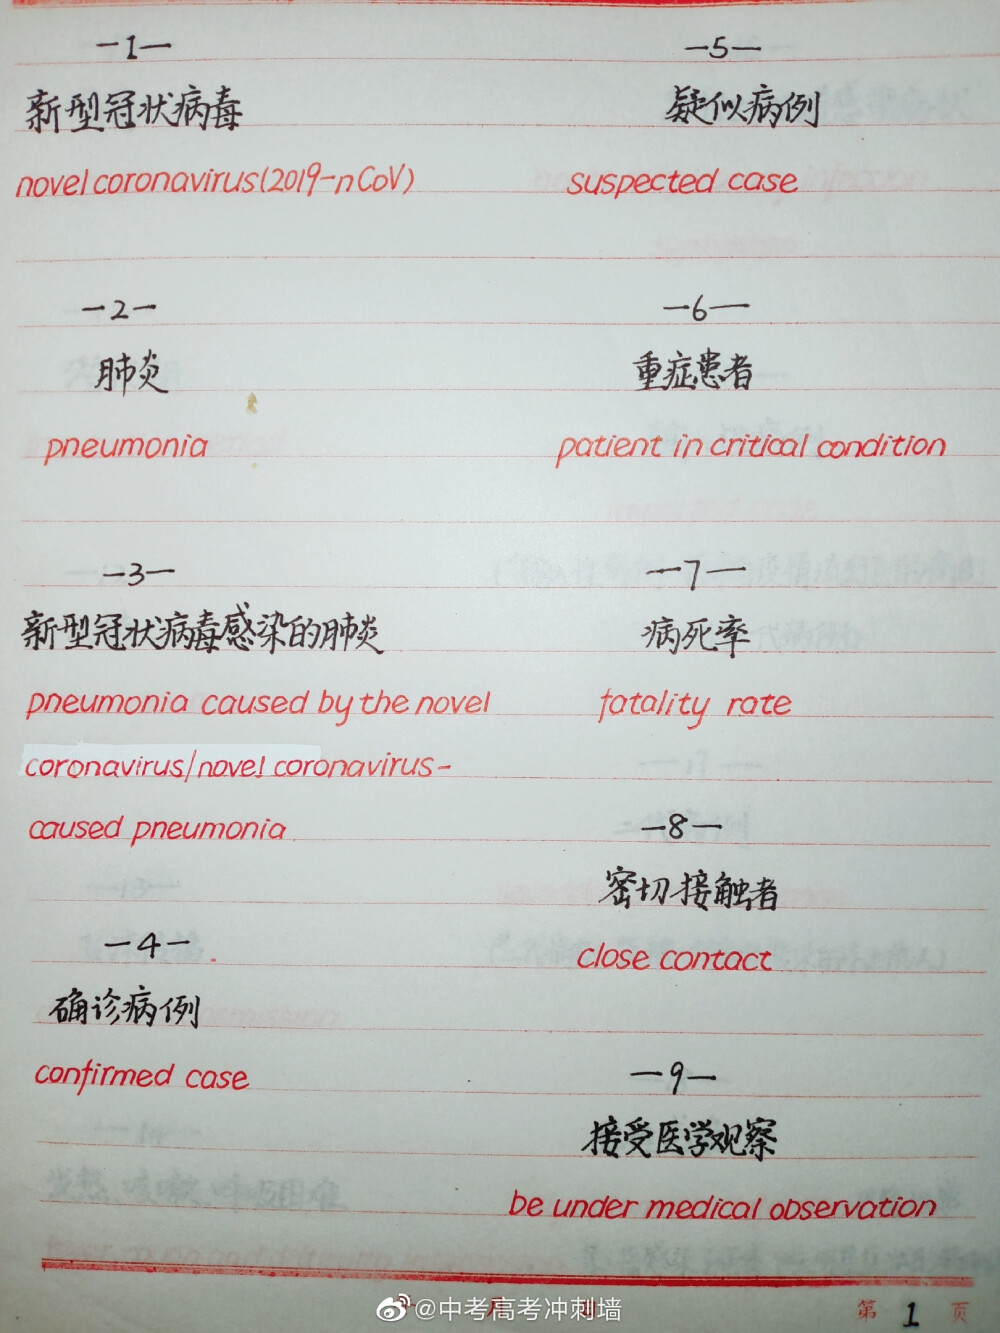 —1—
新型冠状病毒
novel coronavirus(2019-nCoV)
—2—
肺炎
pneumonia
—3—
新型冠状病毒感染的肺炎
pneumonia caused by the novel
coronavirus/novel coronavirus-
caused pneumonia
—4—
确诊病例
confirmed case
—5—
疑似病例
suspected case
—6—
重症患者
patient in critical condition
—7—
病死率
fatality rate
—8—
密切接触者
close contact
—9—
接受医学观察
be under medical observation
@中考高考冲刺墙
第 1 页